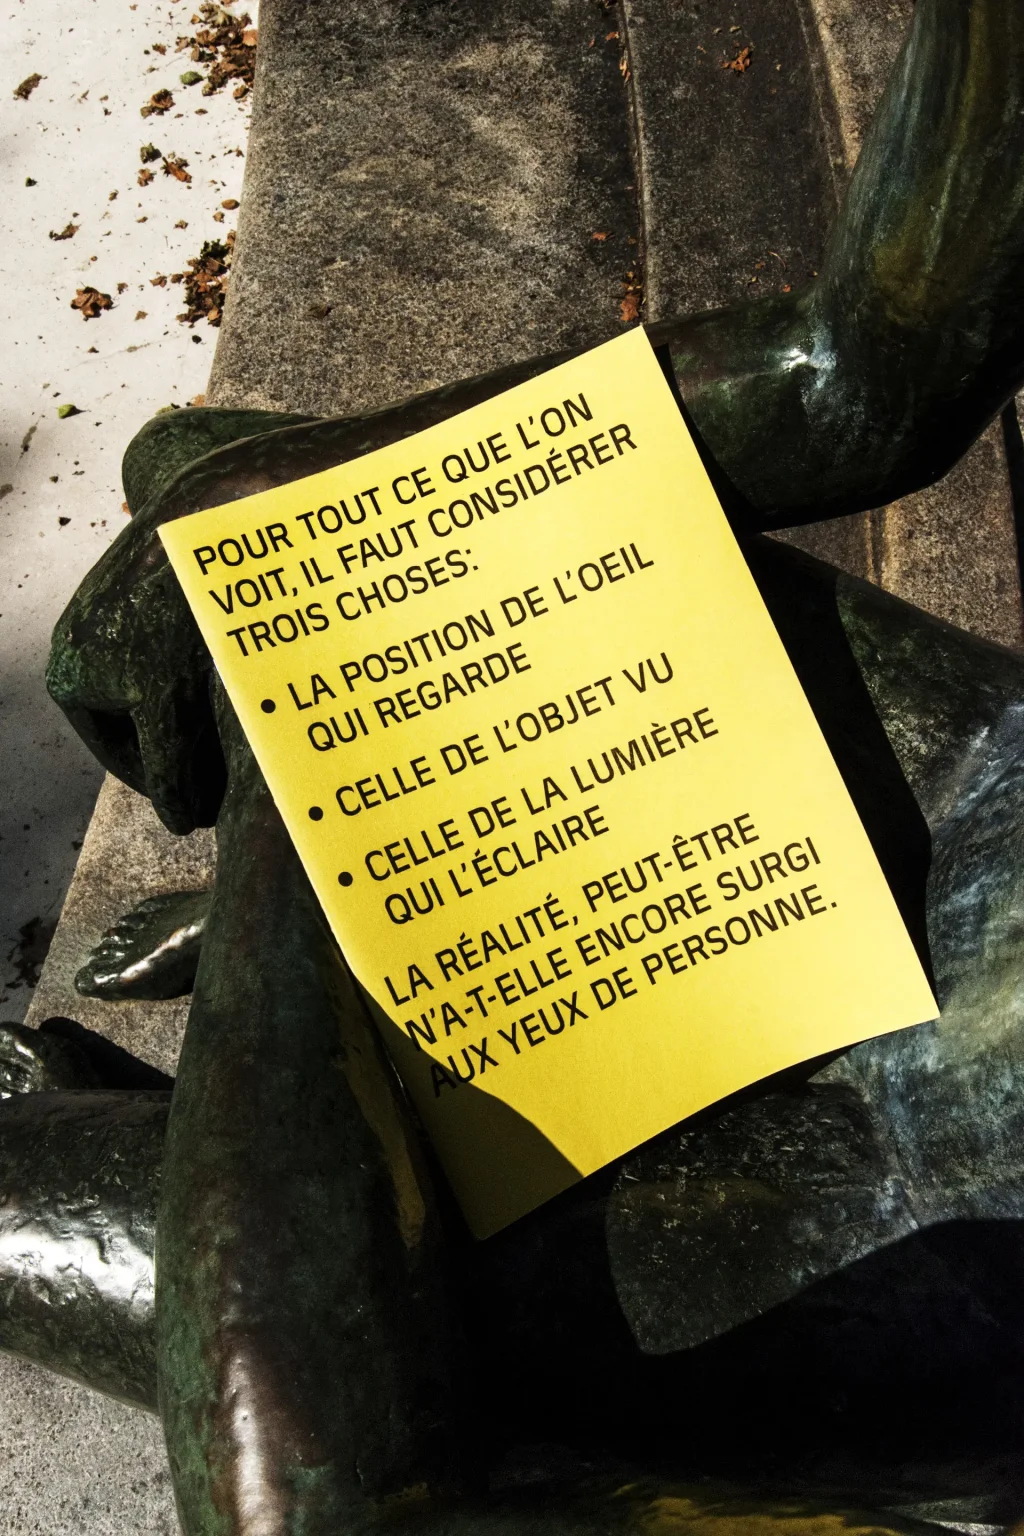 POUR TOUT CE QUE L'ON
VOIT, IL FAUT CONSIDÉRER
TROIS CHOSES:
• LA POSITION DE L'OEIL
QUI REGARDE
• CELLE DE L'OBJET VU
• CELLE DE LA LUMIÈRE
QUI L'ÉCLAIRE
LA RÉALITÉ, PEUT-ÊTRE
N'A-T-ELLE ENCORE SURGI
AUX YEUX DE PERSONNE.